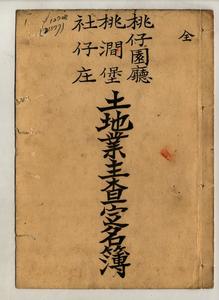 全
桃仔園廳
桃澗堡
社仔庄
土地業主查定名簿